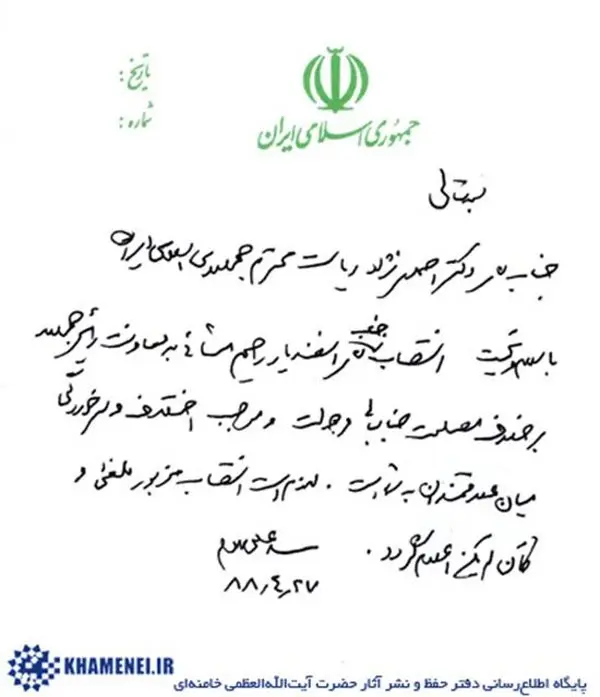 تاریخ :
شماره :
جمهوری اسلامی ایران
بسمه تعالی
جناب آقای دکتر احمدی نژاد ریاست محترم جمهوری اسلامی ایران
با سلام و تحیت انتصاب جناب آقای اسفندیار رحیم مشائی به معاونت رئیس جمهور
بر خلاف مصلحت جنابعالی و دولت و موجب اختلاف و سرخوردگی
میان علاقمندان به شما است . لازم است انتصاب مزبور ملغی و
کان لم یکن اعلام گردد .
سید علی خامنه‌ای
۸۸٫۴٫۲۷
KHAMENEI.IR
پایگاه اطلاع‌رسانی دفتر حفظ و نشر آثار حضرت آیت‌الله‌العظمی خامنه‌ای